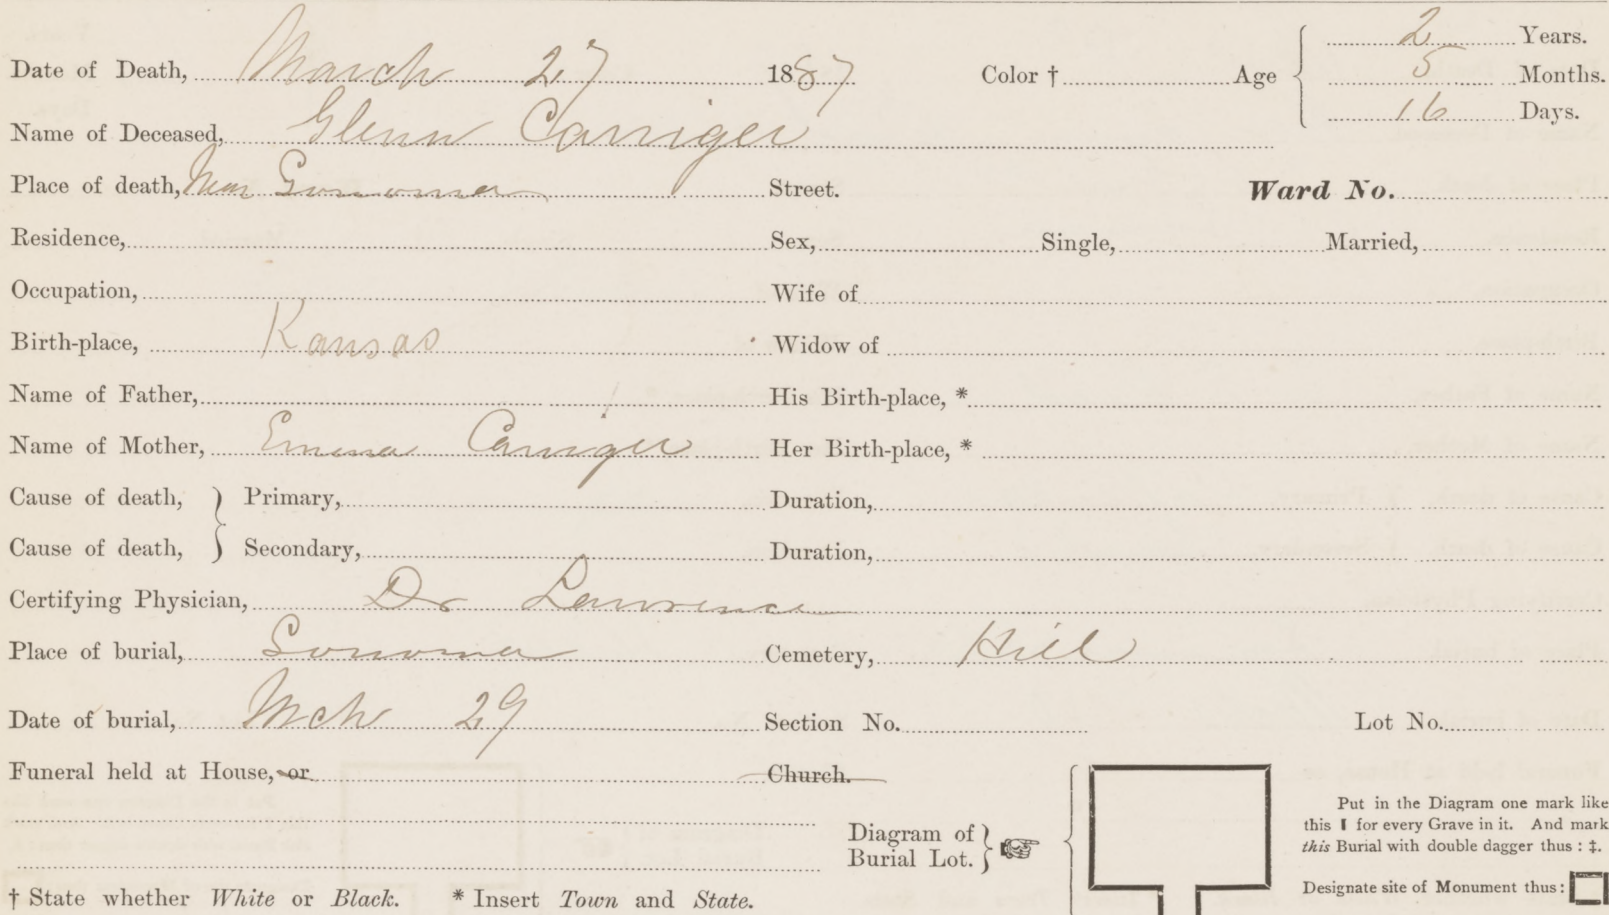 Date of Death, March 27 1887 Color † Age 2 Years.
5 Months.
16 Days.
Name of Deceased, Glenn Carriger
Place of death, Near Sonoma Street. Ward No.
Residence, Sex, Single, Married,
Occupation, Wife of
Birth-place, Kansas Widow of
Name of Father, His Birth-place, *
Name of Mother, Emma Carriger Her Birth-place, *
Cause of death, } Primary, Duration,
Cause of death, } Secondary, Duration,
Certifying Physician, Dr Lawrence
Place of burial, Sonoma Cemetery, Hill
Date of burial, Mch 29 Section No. Lot No.
Funeral held at House, or Church.
Diagram of
Burial Lot.
Put in the Diagram one mark like
this ▮ for every Grave in it. And mark
this Burial with double dagger thus : ‡.
Designate site of Monument thus :
† State whether White or Black. * Insert Town and State.